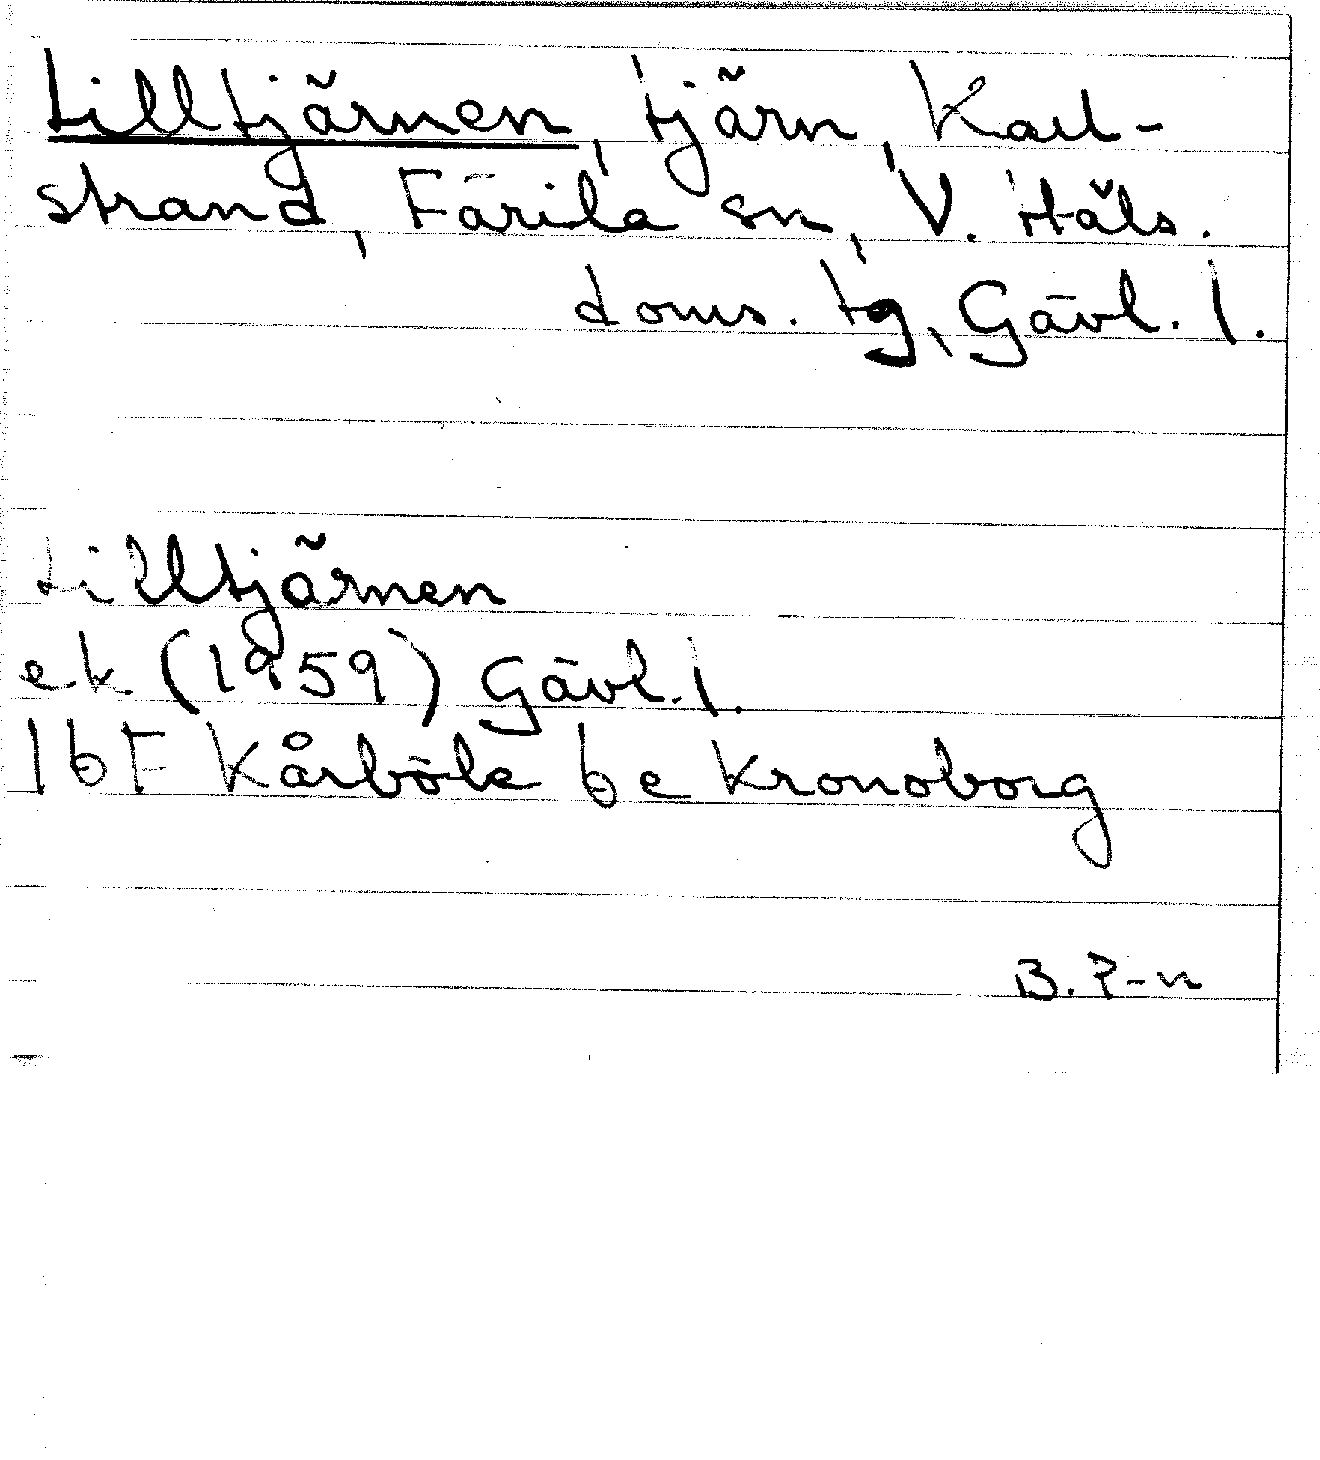 Lilltjärnen, tjärn, Karl-
strand, Färila sn, V. Häls.
doms. tg, Gävl. l.
Lilltjärnen
ek (1959) Gävl. l.
16F Kårböle 6e Kronoborg
B. P-n